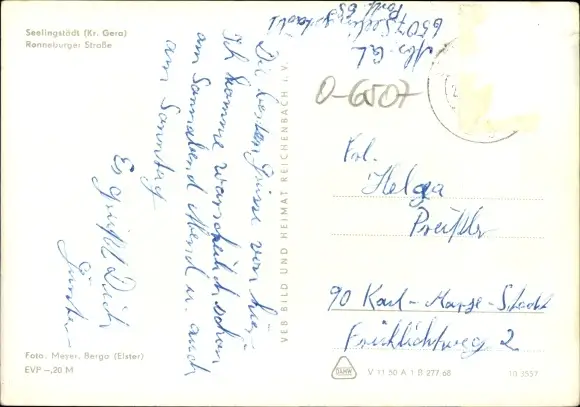 Seelingstädt (Kr. Gera)
Ronneburger Straße
Die besten Grüsse von hier.
Ich komme warscheinlich schon
am Sonnabend Abend u. auch
am Sonntag
Es grüßt Dich
Foto. Meyer, Berga (Elster)
EVP –,20 M
VEB BILD UND HEIMAT REICHENBACH i. V.
Abs.
6507
O-6507
Frl.
Helga
90 Karl-Marx-Stadt
2
DAHW
V 11 50 A 1 B 277/68
10 3557